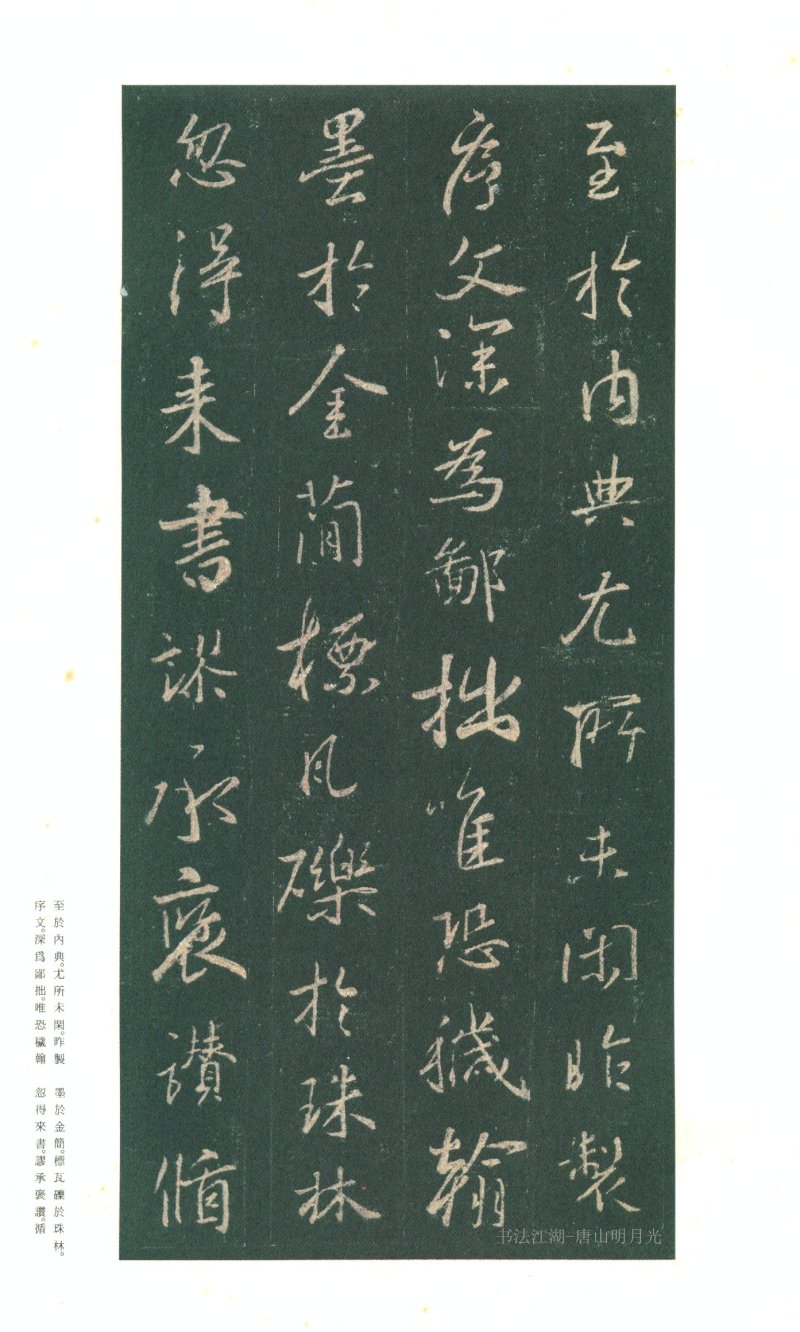 至於内典尤所未閑昨製
序文深為鄙拙唯恐穢翰
墨於金簡標瓦礫於珠林
忽得来書謬承褒讃循
至於内典。尤所未閑。昨製
序文。深爲鄙拙。唯恐穢翰
墨於金簡。標瓦礫於珠林。
忽得來書。謬承褒讚。循
书法江湖-唐山明月光